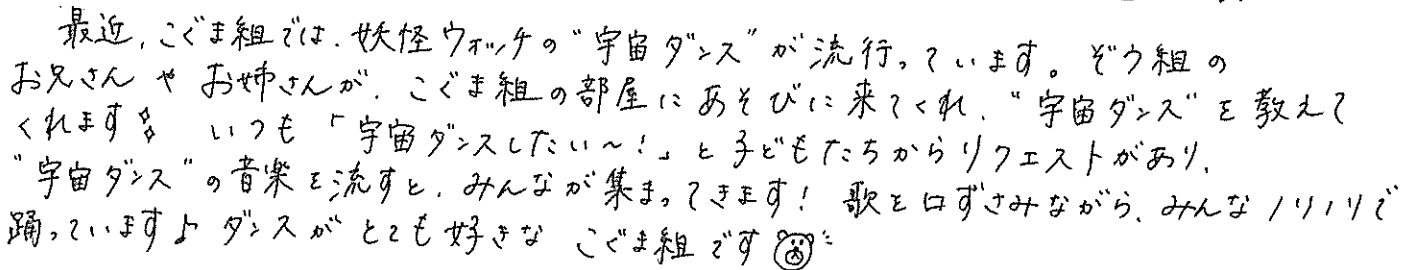 最近、こぐま組では、妖怪ウォッチの"宇宙ダンス"が流行っています。ぞう組の
お兄さんやお姉さんが、こぐま組の部屋にあそびに来てくれ、"宇宙ダンス"を教えて
くれます いつも「宇宙ダンスしたい〜!」と子どもたちからリクエストがあり、
"宇宙ダンス"の音楽を流すと、みんなが集まってきます!歌を口ずさみながら、みんなノリノリで
踊っています♪ダンスがとても好きなこぐま組です